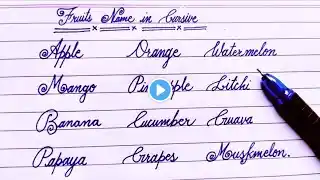 Fruits Name in Cursive
Apple Orange Watermelon
Mango Litchi
Banana Cucumber Guava
Papaya Grapes Muskmelon.